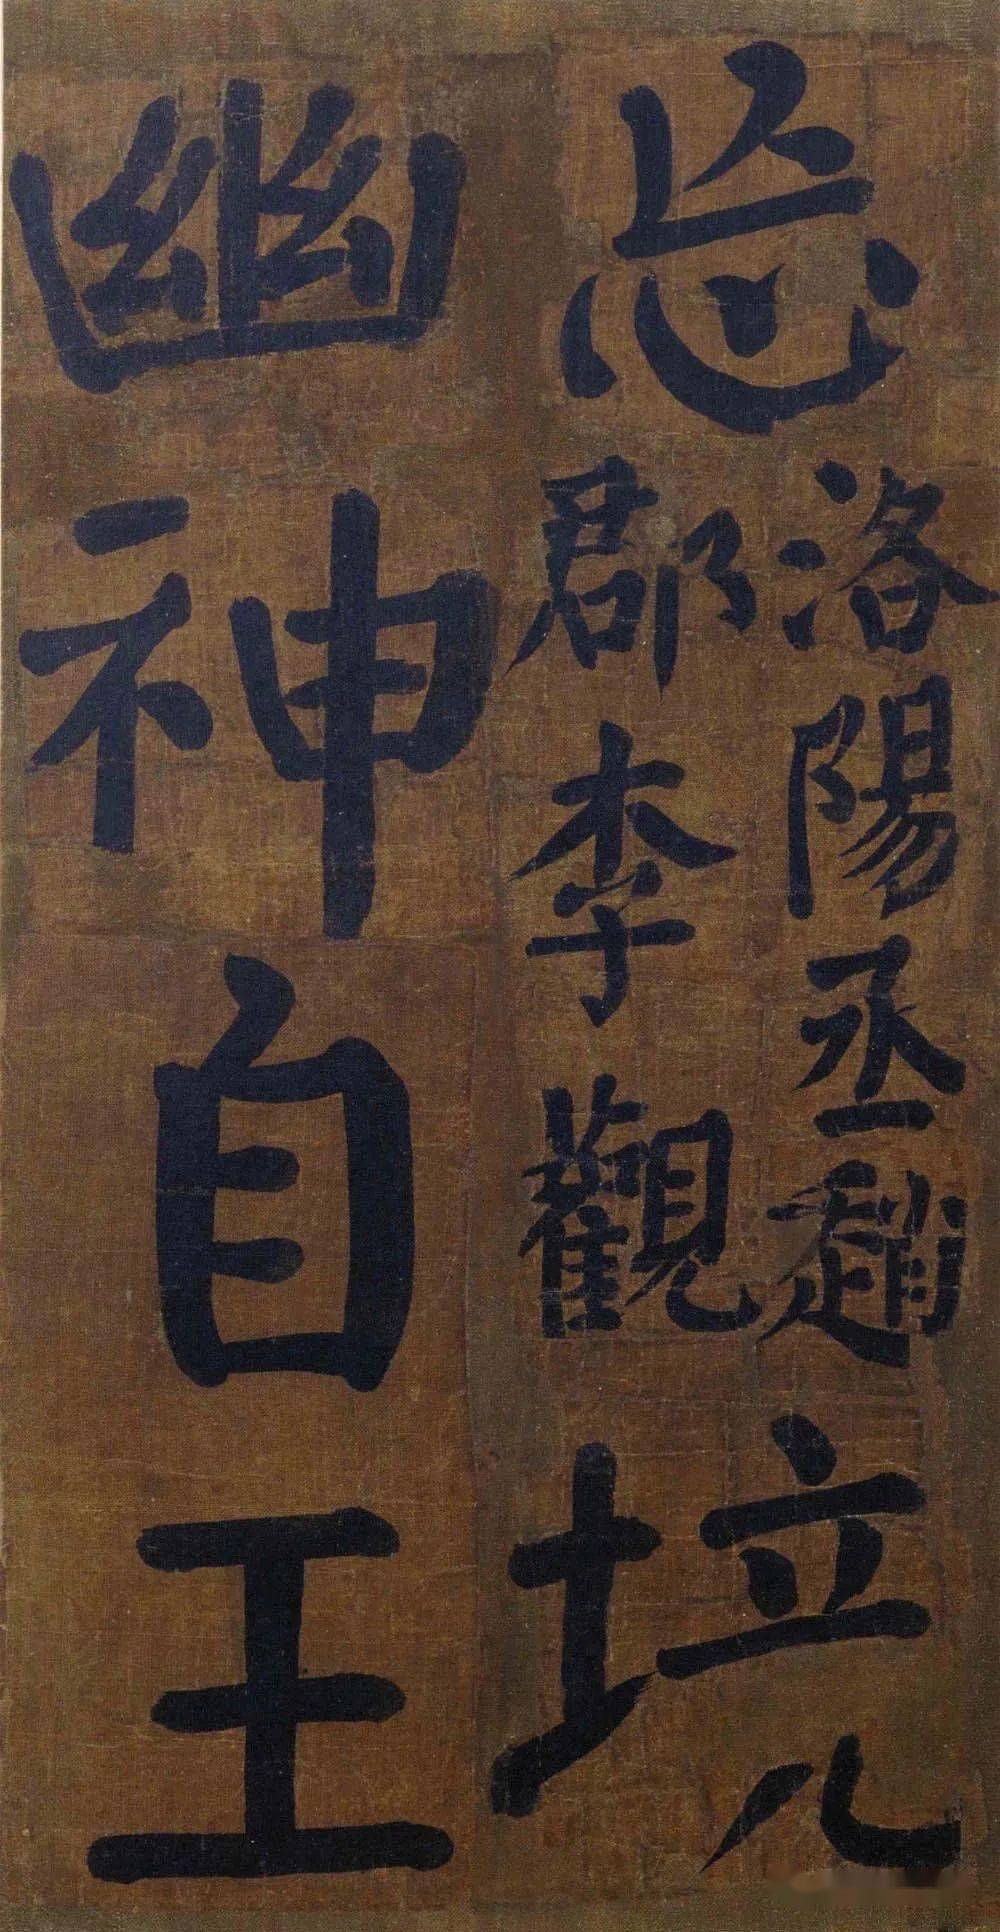 洛陽丞趙
郡李觀
幽神自王